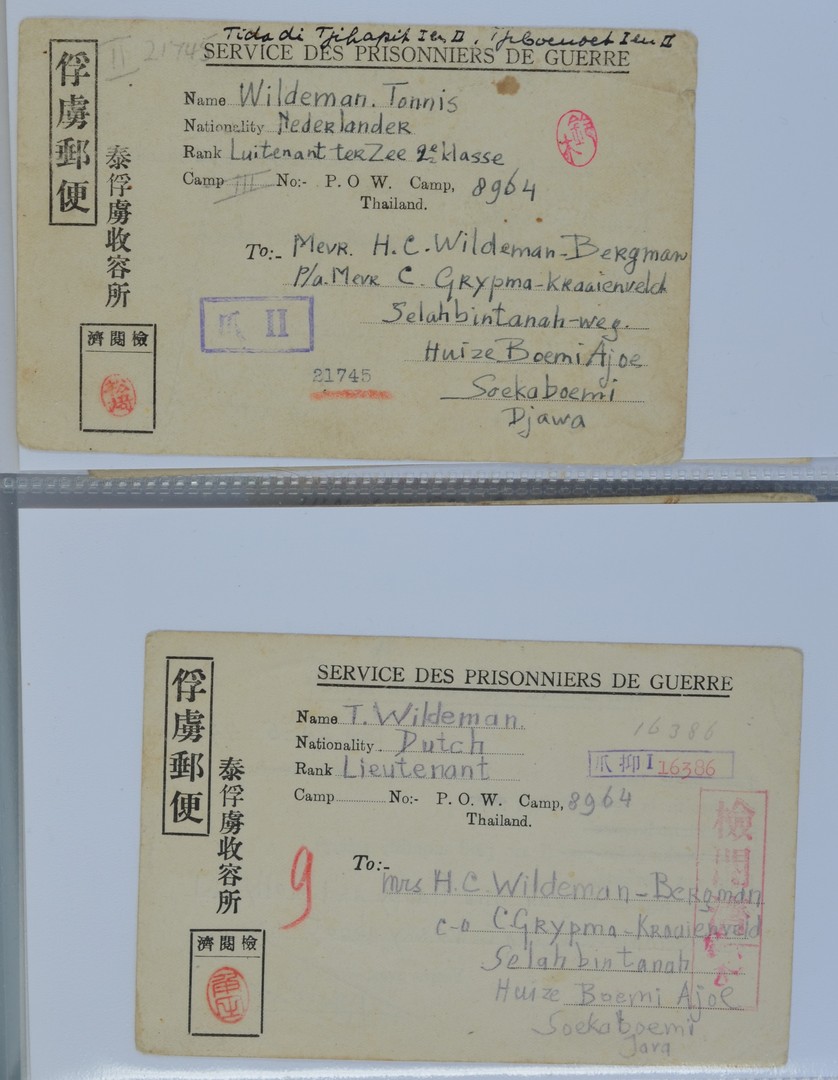 Tida di Tjihapit I en II, Tjiboenoet I en II
II 21745
SERVICE DES PRISONNIERS DE GUERRE
俘虜郵便
泰俘虜收容所
Name Wildeman. Tonnis
Nationality Nederlander
Rank Luitenant ter Zee 2e klasse
Camp III No:- P. O W. Camp, 8964
Thailand.
To:- Mevr. H.C. Wildeman-Bergman
P/a. Mevr C. Grypma-Kraaienveld
Selahbintanah-weg.
Huize Boemi Ajoe
Soekaboemi
Djawa
爪 II
21745
檢閱濟
SERVICE DES PRISONNIERS DE GUERRE
俘虜郵便
泰俘虜收容所
Name T. Wildeman.
Nationality. Dutch
Rank Lieutenant
Camp No:- P. O. W. Camp, 8964
Thailand.
16386
爪抑I 16386
9
To:-
Mrs H.C. Wildeman-Bergman
c-o C Grypma-Kraaienveld
Selahbintanah
Huize Boemi Ajoe
Soekaboemi
Java
檢閱濟